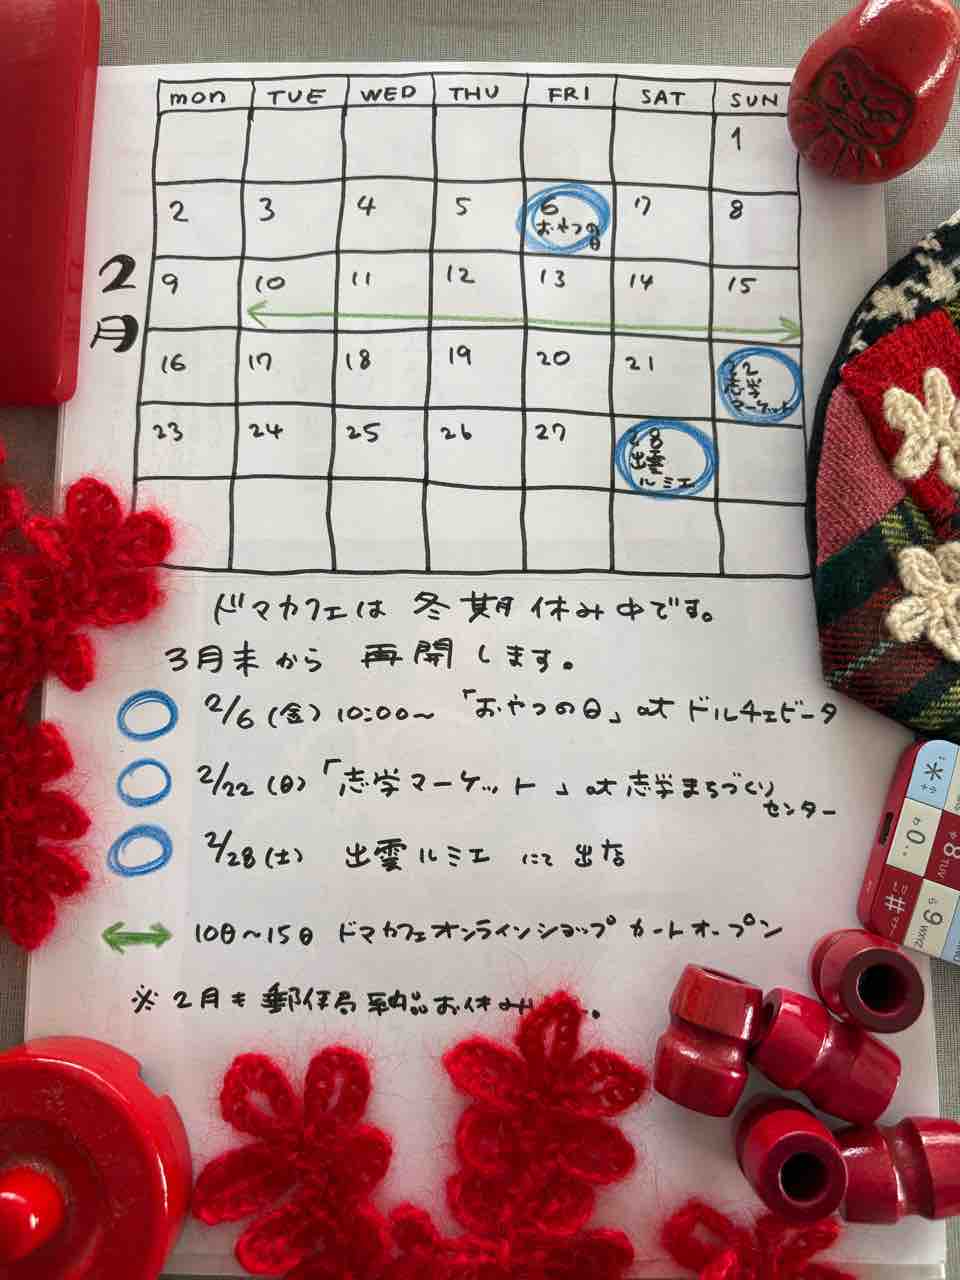 2月
MON TUE WED THU FRI SAT SUN
1
2 3 4 5 6 7 8
おやつの日
9 10 11 12 13 14 15
16 17 18 19 20 21 22
志学マーケット
23 24 25 26 27 28
出雲ルミエ
ドマカフェは 冬期休み中です。
3月末から 再開します。
2/6(金)10:00〜「おやつの日」at ドルチェビータ
2/22(日)「志学マーケット」at 志学まちづくりセンター
2/28(土) 出雲ルミエ にて 出店
10日〜15日 ドマカフェオンラインショップ カートオープン
※ 2月も 郵便局 納品お休み
*
0
8 TUV
#
9 WXYZ